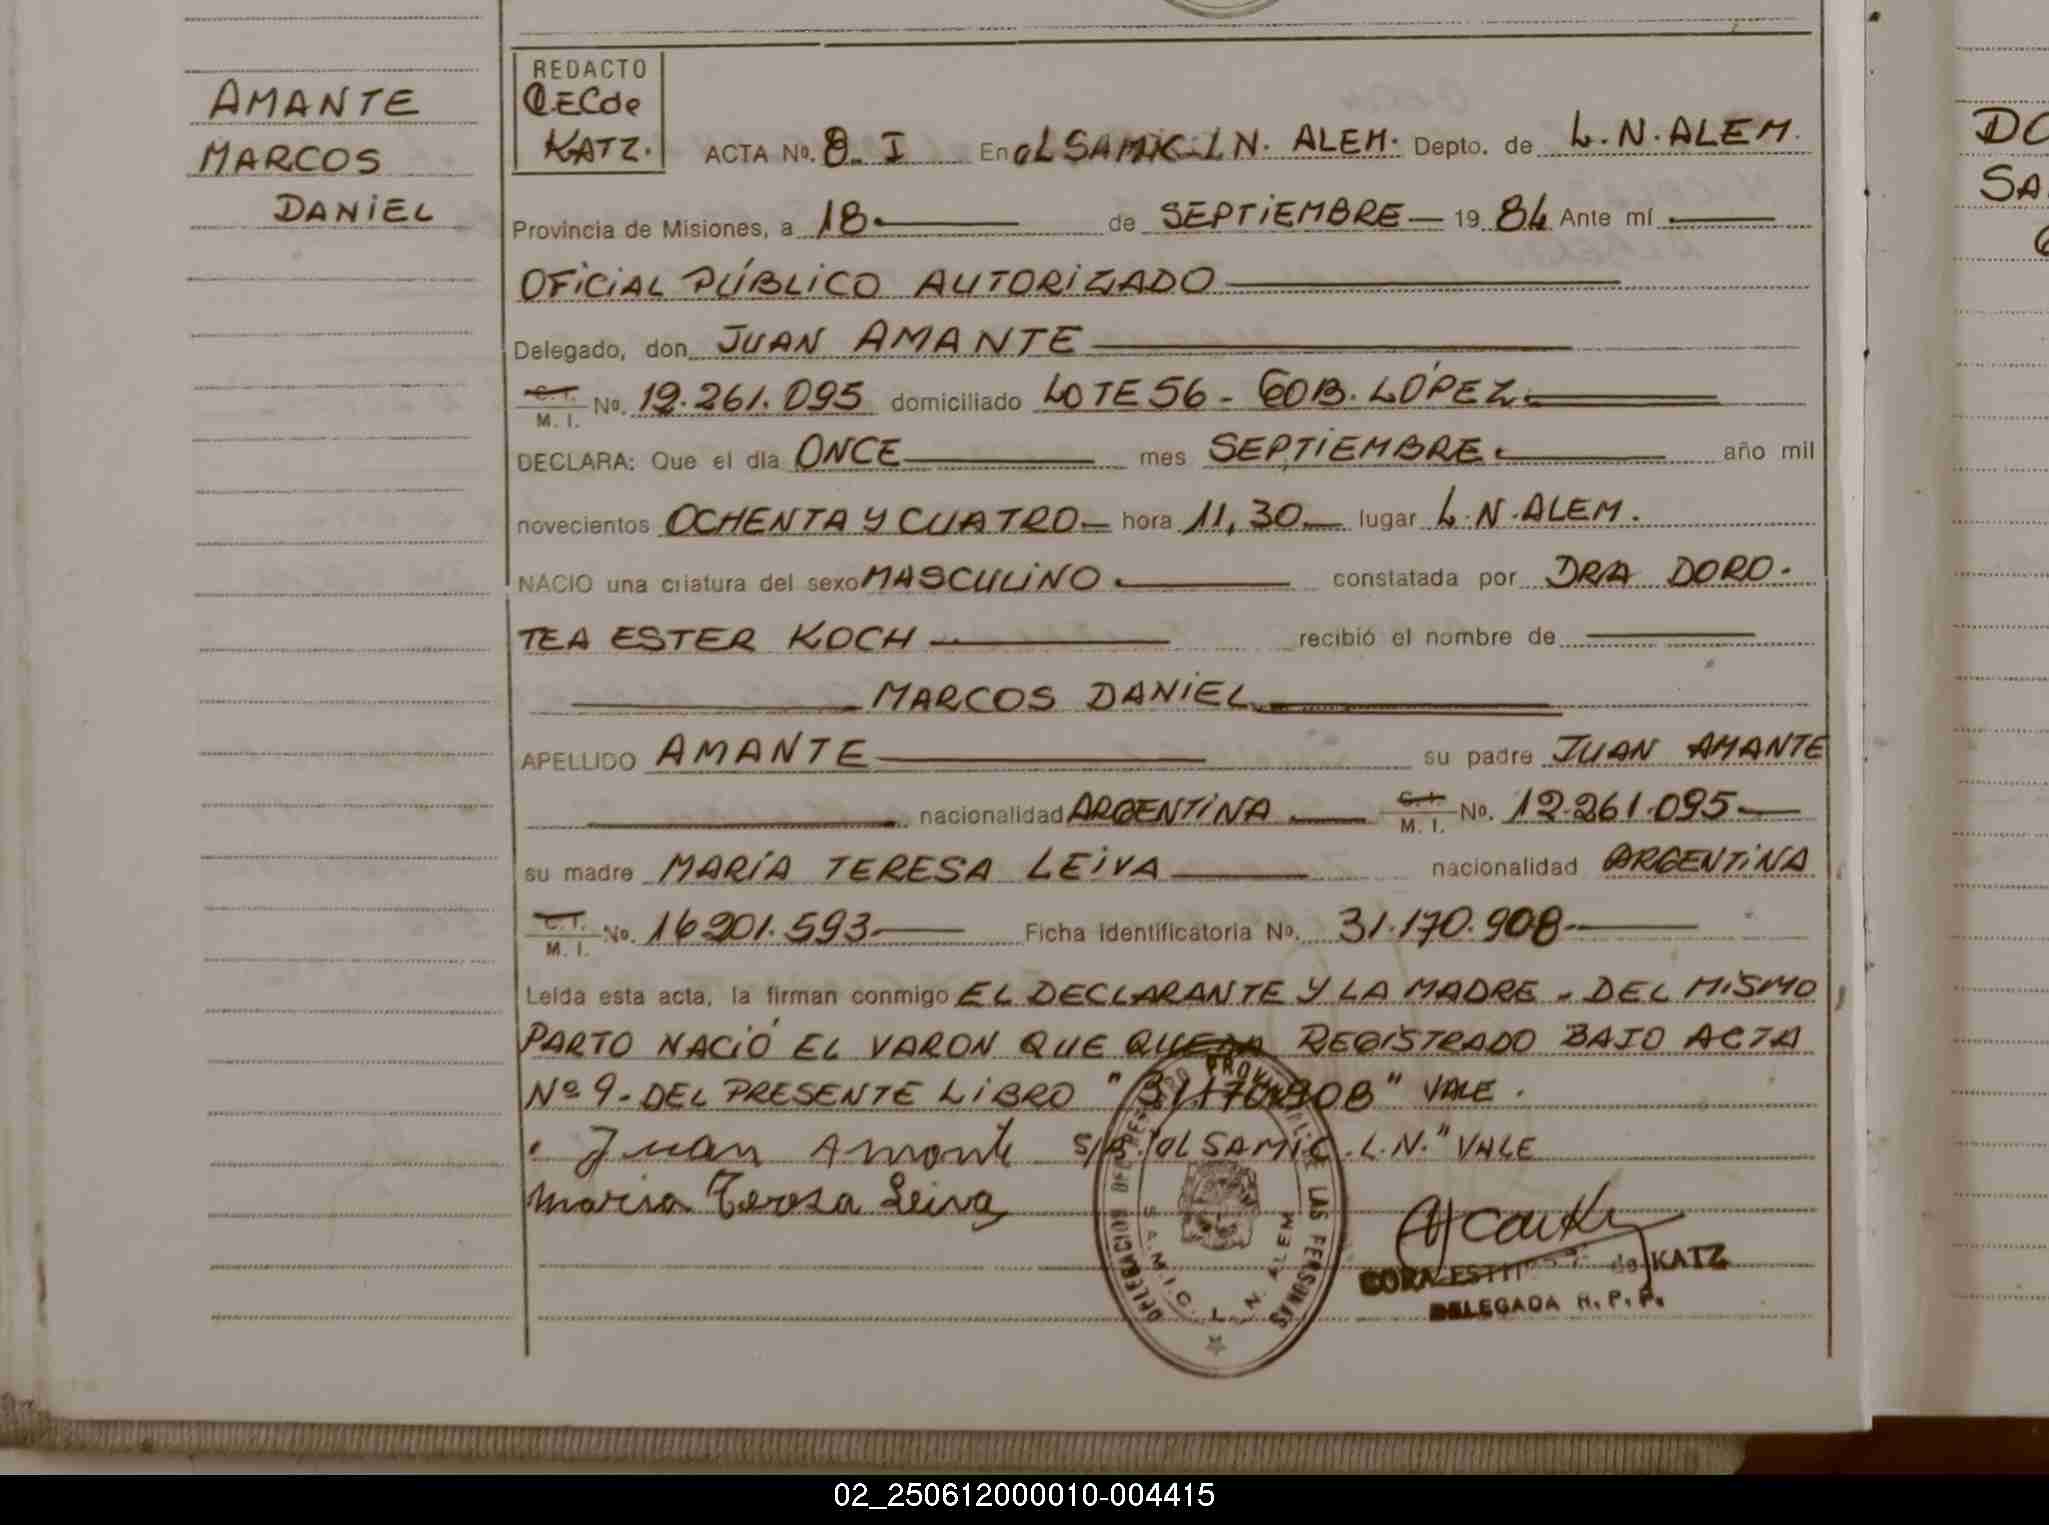 AMANTE
MARCOS
DANIEL
REDACTO
CECde
KATZ.
ACTA No. 8 I En OL SAMIC L N. ALEM. Depto. de L.N.ALEM.
Provincia de Misiones, a 18 de SEPTIEMBRE 19 84 Ante mí
OFICIAL PÚBLICO AUTORIZADO
Delegado, don JUAN AMANTE
C.I. M. I. No. 12.261.095 domiciliado LOTE 56 - GOB. LÓPEZ
DECLARA: Que el día ONCE mes SEPTIEMBRE año mil
novecientos OCHENTA Y CUATRO hora 11,30 lugar L.N.ALEM.
NACIO una criatura del sexo MASCULINO constatada por DRA DORO-
TEA ESTER KOCH recibió el nombre de
MARCOS DANIEL
APELLIDO AMANTE su padre JUAN AMANTE
nacionalidad ARGENTINA C.I. M. I. No. 12.261.095
su madre MARÍA TERESA LEIVA nacionalidad ARGENTINA
C.I. M. I. No. 16201.593 Ficha identificatoria No. 31.170.908
Leída esta acta, la firman conmigo EL DECLARANTE Y LA MADRE. DEL MISMO
PARTO NACIÓ EL VARON QUE QUEDA REGISTRADO BAJO ACTA
Nº 9. DEL PRESENTE LIBRO "31170908" VALE.
Juan Amante S/R. "OL SAMIC.L.N." VALE
Maria Teresa Leiva
DELEGACION DEL REGISTRO PROVINCIAL DE LAS PERSONAS
S.A.M.I.C. L. N. ALEM
de KATZ
DELEGADA R. P. P.
DO
SA
02_250612000010-004415